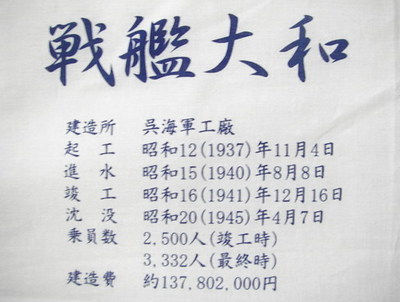 戦艦大和
建造所 呉海軍工廠
起工 昭和12(1937)年11月4日
進水 昭和15(1940)年8月8日
竣工 昭和16(1941)年12月16日
沈没 昭和20(1945)年4月7日
乗員数 2,500人(竣工時)
3,332人(最終時)
建造費 約137,802,000円